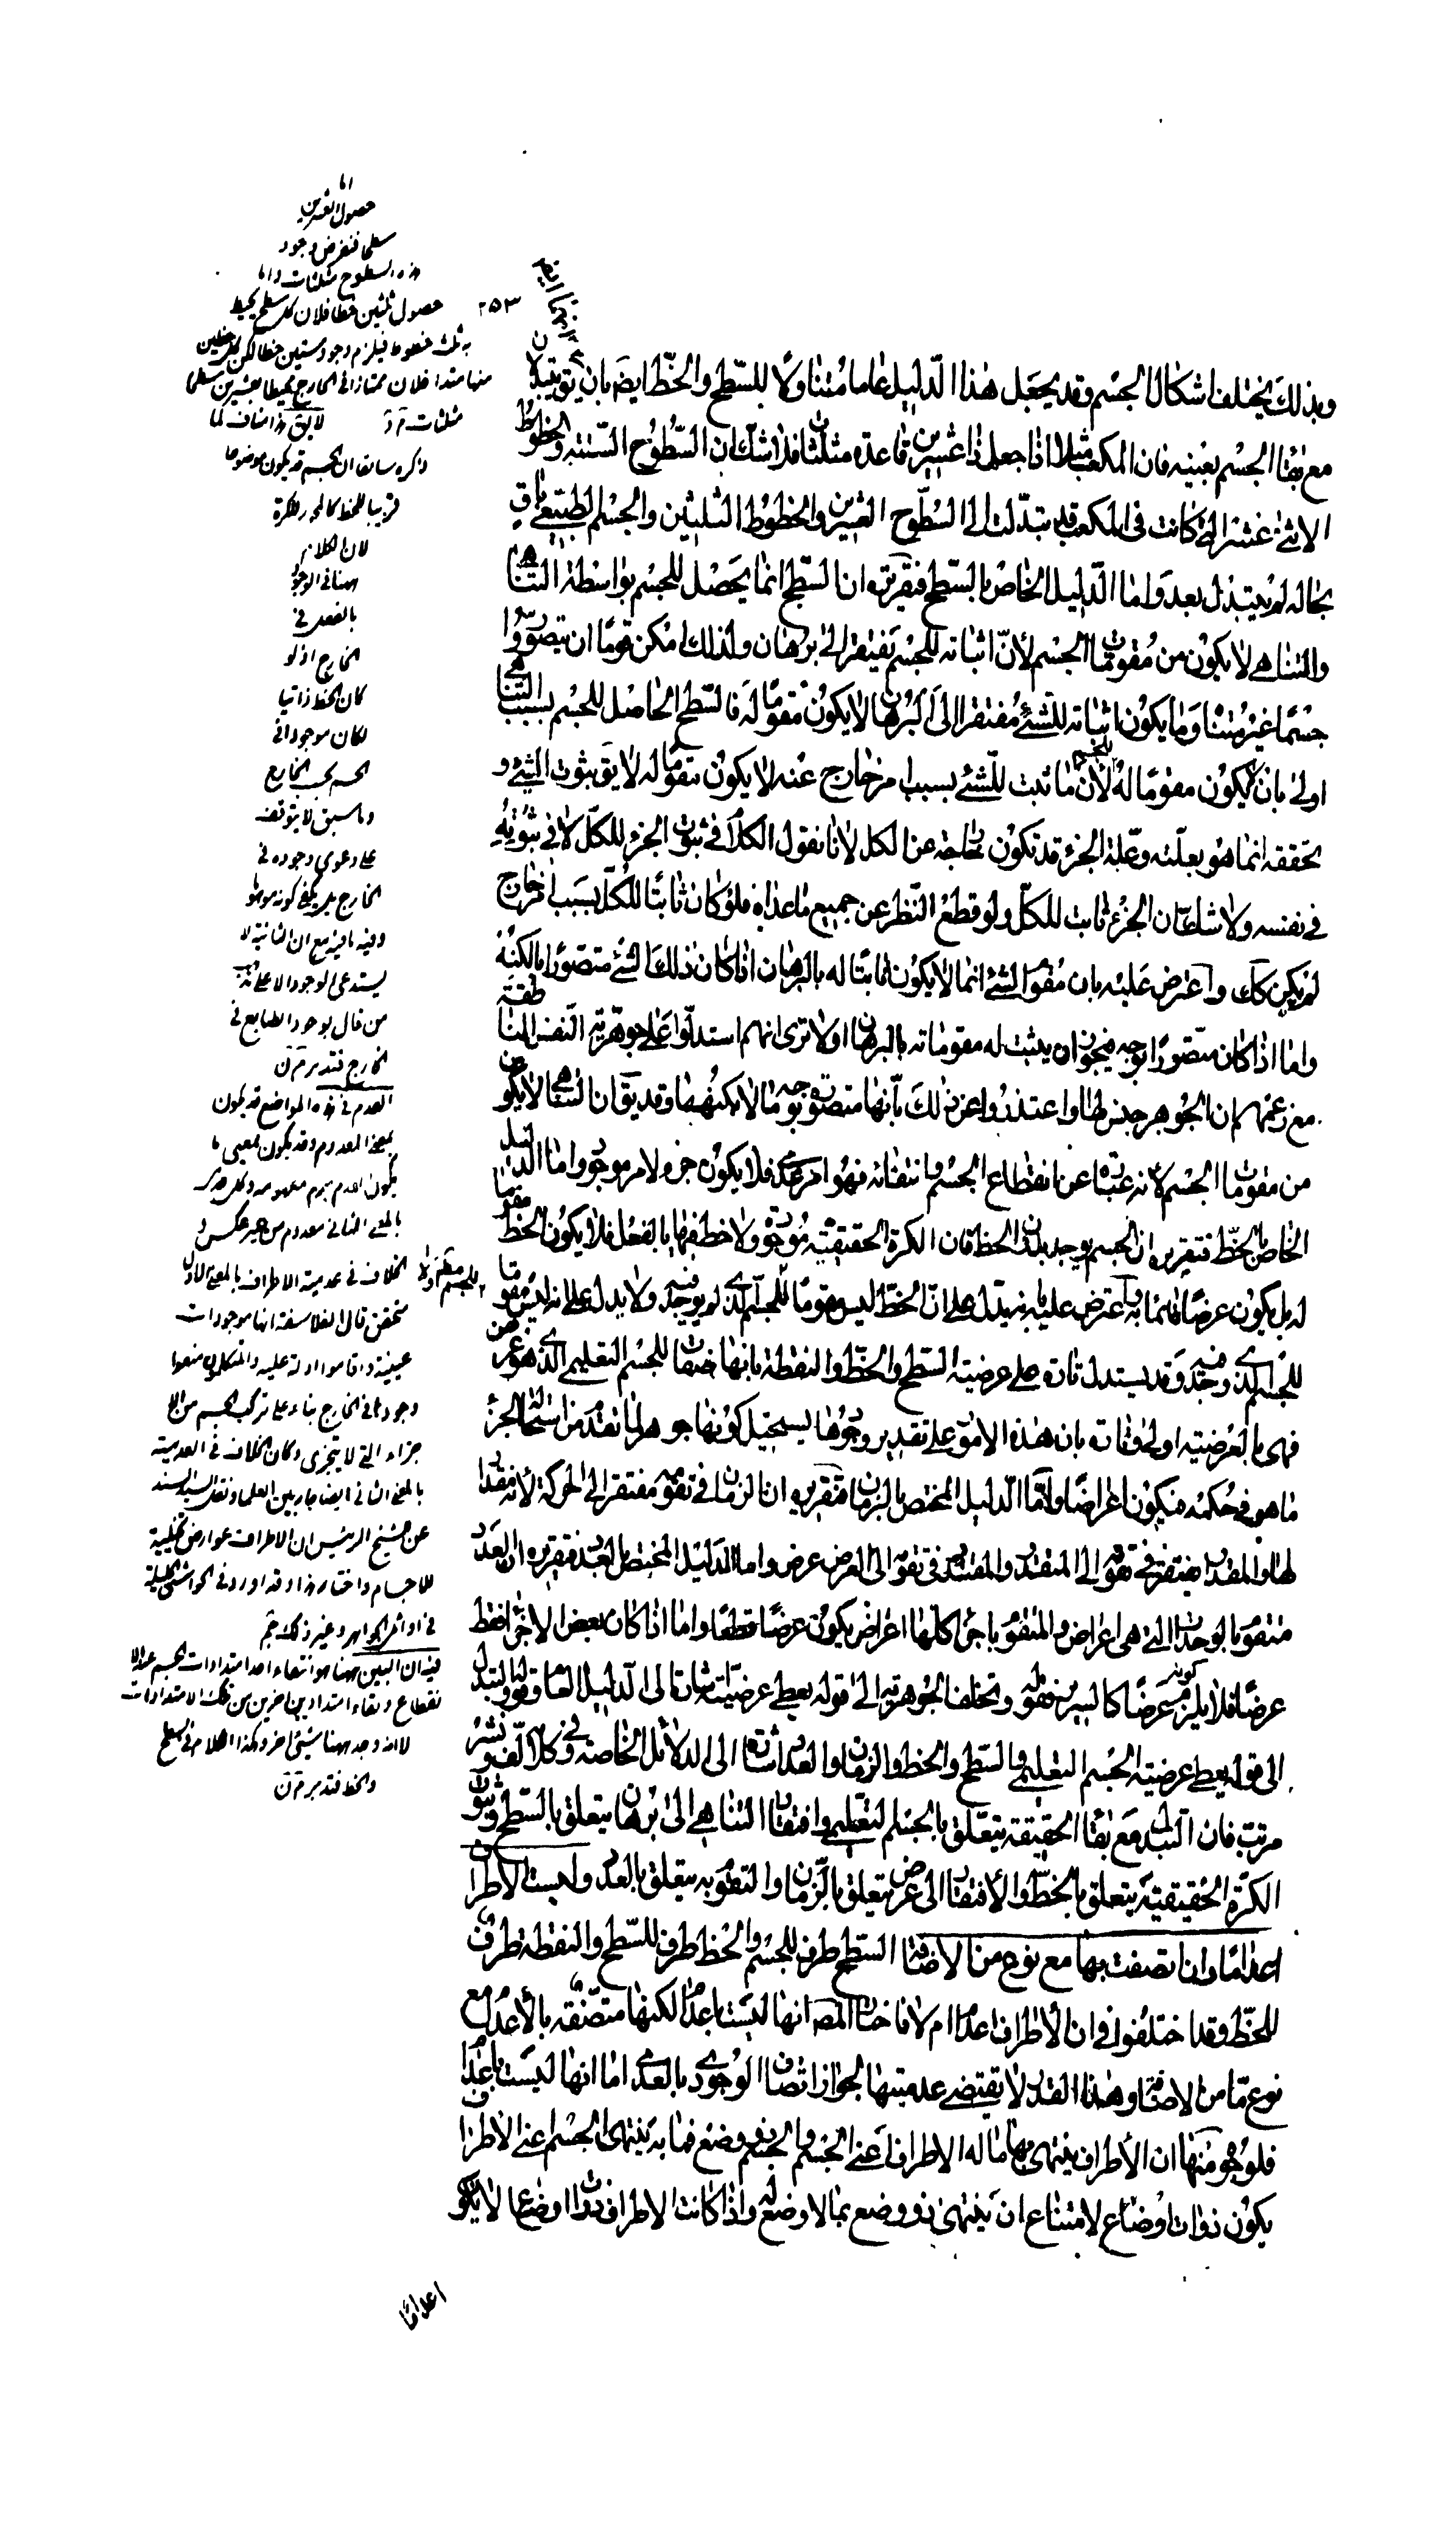 وبذلك يختلف اشكال الجسم وقد يجعل هذا الدليل عاما متناولا للسطح والخط ايضا بان يق يتبدلان
مع بقاء الجسم بعينه فان المكعب مثلا اذا جعل ذا عشرين قاعدة مثلثات فلا شك ان السطوح الستة والخطوط
الاثنى عشر التي كانت في المكعب قد تبدلت الى السطوح العشرين والخطوط الثلثين والجسم الطبيعي باق
بحاله لم يتبدل بعد واما الدليل الخاص بالسطح فتقريره ان السطح انما يحصل للجسم بواسطة التناهي
والتناهي لا يكون من مقومات الجسم لأن اثباته للجسم يفتقر الى برهان ولذلك امكن قوما ان يتصوروا
جسما غير متناه وما يكون اثباته للشئ مفتقرا الى البرهان لا يكون مقوما له فالسطح الحاصل للجسم بسبب التناهي
اولى بان لا يكون مقوما له لأن ما ثبت للشئ بسبب امر خارج عنه لا يكون مقوما له لا يق ثبوت الشئ و
تحققه انما هو بعلته وعلة الجزء قد تكون خارجة عن الكل لانا نقول الكلام في ثبوت الجزء للكل لا في ثبوته
في نفسه ولا شك ان الجزء ثابت للكل ولو قطع النظر عن جميع ماعداه فلو كان ثابتا للكل بسبب امر خارج
لم يكن كك واعترض عليه بان مقوم الشئ انما لا يكون ثابتا له بالبرهان اذا كان ذلك الشئ متصورا بالكنه
واما اذا كان متصورا بوجه فيجوز ان يثبت له مقوماته بالبرهان اولا ترى انهم استدلوا على جوهرية النفس الناطقة
مع زعمهم ان الجوهر جنس لها واعتذروا عن ذلك بأنها متصورة بوجه ما لا بكنهها وقد يق ان التناهي لا يكون
من مقومات الجسم لأنه عبارة عن انقطاع الجسم وانتفائه فهو امر عدمي فلا يكون جزء لامر موجود واما الدليل
الخاص بالخط فتقريره ان الجسم يوجد بدون الخط فان الكرة الحقيقية موجودة ولا خط فيها بالفعل فلا يكون الخط مقوما
له بل يكون عرضا قائما به واعترض عليه بانه يدل على ان الخط ليس مقوما للجسم الذي لم يوجد فيه ولا يدل على انه ليس مقوما
للجسم الذي وجد فيه وقد يستدل تارة على عرضية السطح والخط والنقطة بانها صفات للجسم التعليمي الذي هو عرض
فهي بالعرضية اولى وتارة بان هذه الامور على تقدير وجودها يستحيل كونها جواهر لما تقدم من استحالة الجزء
ما هو في حكمه فيكون اعراضا واما الدليل المختص بالزمان فتقريره ان الزمان في تقومه مفتقر الى الحركة لأنه مقدار
لها والمقدار مفتقر في تقومه الى المتقدر والمفتقر في تقومه الى العرض عرض واما الدليل المختص بالعدد فتقريره ان العدد
متقوم بالوحدات التي هي اعراض والمتقوم باجزاء كلها اعراض يكون عرضا قطعا واما اذا كان بعض الاجزاء فقط
عرضا فلا يلزم كونه عرضا كالسرير فقوله وتخلف الجوهرية الى قوله يعطى عرضيته اشارة الى الدليل العام وقوله والتبدل
الى قوله يعطى عرضية الجسم التعليمي والسطح والخط والزمان والعدد اشارة الى الدلائل الخاصة وفي كلامه لف ونشر
مرتب فان التبدل مع بقاء الحقيقة يتعلق بالجسم التعليمي وافتقار التناهي الى برهان يتعلق بالسطح وثبوت
الكرة الحقيقية يتعلق بالخط والافتقار الى عرض يتعلق بالزمان والتقوم به يتعلق بالعدد وليست الاطراف
اعداما وان اتصفت بها مع نوع من الاضافة السطح طرف للجسم والخط طرف للسطح والنقطة طرف
للخط وقد اختلفوا في ان الأطراف اعدام ام لا فاختار المصه انها ليست باعدام لكنها متصفة بالأعدام مع
نوع ما من الاضافة وهذا القدر لا يقتضي عدميتها لجواز اتصاف الوجودي بالعدمي اما انها ليست باعدام
فلوجوه منها ان الأطراف ينتهي بها ما له الاطراف اعني الجسم والجسم ذو وضع فما به ينتهي الجسم اعني الاطراف
يكون ذوات اوضاع لامتناع ان ينتهي ذو وضع بما لا وضع له واذا كانت الاطراف ذوات اوضاع لا يكون
اعداما
٢٥٣
اما
حصول العشرين
سطحا فنفرض وجود
هذه السطوح مثلثات واما
حصول ثلثين خطا فلان كل سطح يحيط
به ثلث خطوط فيلزم وجود ستين خطا لكن كل خطين
منها متداخلان
لان الكلام
ههنا في الوجود
بالفعل في
الخارج اذ لو
كان الخط ذاتيا
لكان موجودا في
الجسم بحسب الخارج
وما سبق لا يتوقف
على دعوى وجوده في
الخارج بل يكفي كونه
يستدعى الوجود الا على مذهب
من قال بوجود الطبايع في
الخارج فتدبر
العدم في هذه المواضع قد يكون
بمعنى المعدوم وقد يكون بمعنى ما
بالمعنى الثاني معدوم من غير عكس و
الخلاف في عدمية الاطراف بالمعنى الاول
متحقق قال الفلاسفة انها موجودات
عينية واقاموا ادلة عليه والمتكلمون منعوا
وجودها في الخارج بناء على تركب الجسم من الا
جزاء التي لا يتجزى وكان الخلاف في العدمية
بالمعنى الثاني ايضا جار بين العلماء ونقل السيد السند
عن الشيخ الرئيس ان الاطراف عوارض تحليلية
للاجسام واختار هذا وقد اورد في الحواشي الجليلة
في اوائل الجواهر وغير ذلك
فيه ان البين ههنا هو انتهاء احد امتدادات الجسم عند الا
نقطاع وبقاء امتدادين اخرين من تلك الامتدادات
لا انه وجد ههنا شيئ اخر وهكذا الكلام في السطح
والخط فتدبر